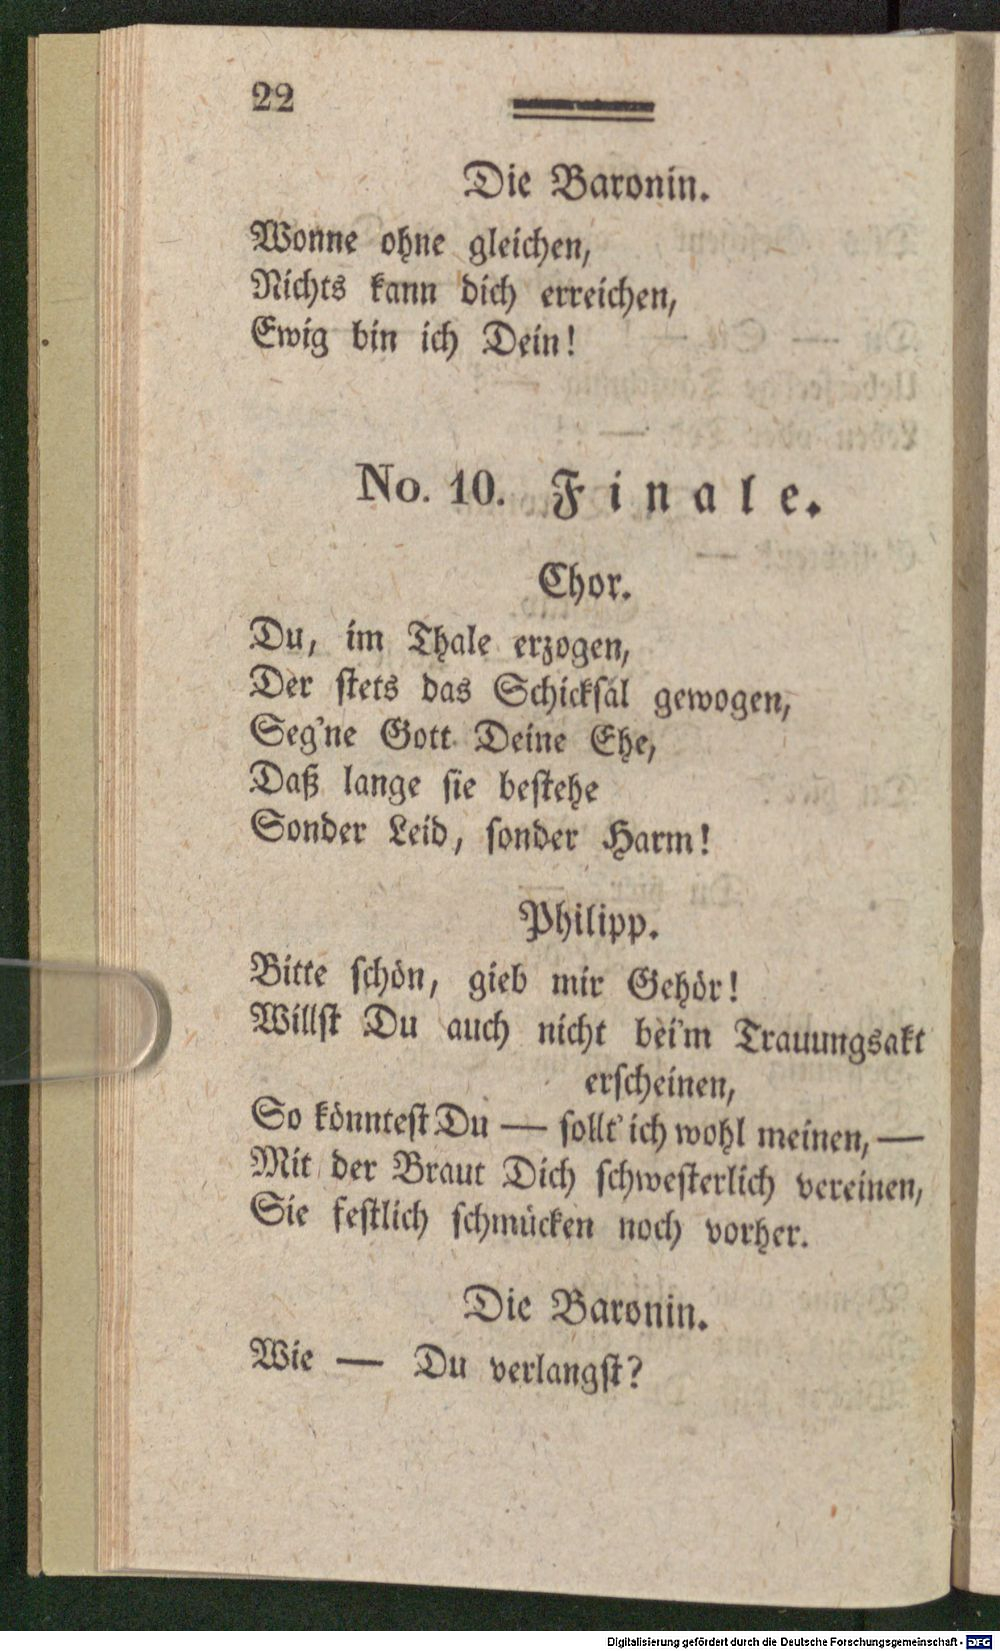 22
Die Baronin.
Wonne ohne gleichen,
Nichts kann dich erreichen,
Ewig bin ich Dein!
No. 10. Finale.
Chor.
Du, im Thale erzogen,
Der stets das Schicksal gewogen,
Seg'ne Gott Deine Ehe,
Daß lange sie bestehe
Sonder Leid, sonder Harm!
Philipp.
Bitte schön, gieb mir Gehör!
Willst Du auch nicht bei'm Trauungsakt
erscheinen,
So könntest Du — sollt' ich wohl meinen, —
Mit der Braut Dich schwesterlich vereinen,
Sie festlich schmücken noch vorher.
Die Baronin.
Wie — Du verlangst?
Digitalisierung gefördert durch die Deutsche Forschungsgemeinschaft - DFG